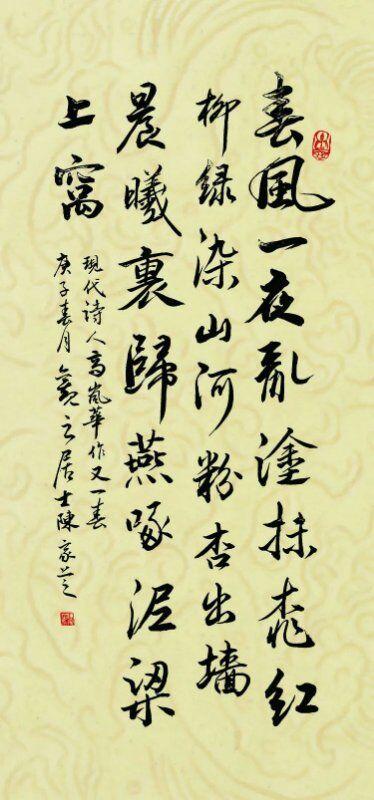 春風一夜亂塗抹桃紅
柳緑染山河粉杏出墻
晨曦裏歸燕啄泥梁
上窩
現代詩人高嵐華作又一春
庚子春月之居士陳家